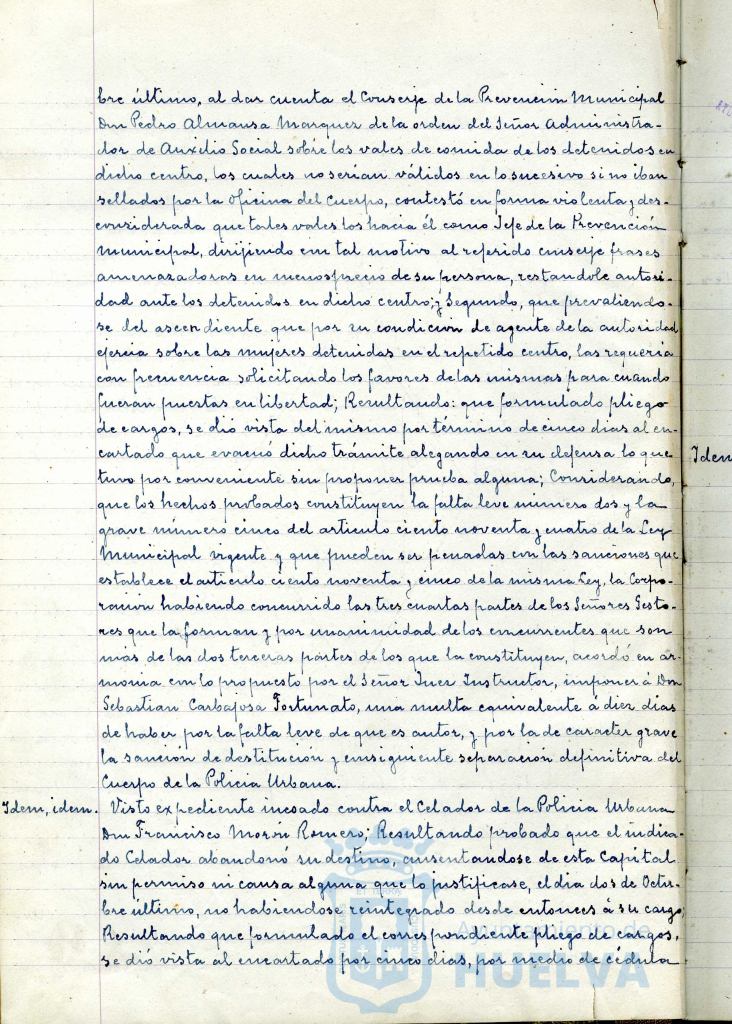 bre último, al dar cuenta el Conserje de la Prevención Municipal
Don Pedro Almansa Marquez de la orden del Señor Administra-
dor de Auxilio Social sobre los vales de comida de los detenidos en
dicho centro, los cuales no serian válidos en lo sucesivo si no iban
sellados por la Oficina del Cuerpo, contestó en forma violenta y des-
considerada que tales vales los hacia él como Jefe de la Prevención
Municipal, dirijiendo con tal motivo al referido conserje frases
amenazadoras en menosprecio de su persona, restandole autori-
dad ante los detenidos en dicho centro; y Segundo, que prevaliendo-
se del ascendiente que por su condición de agente de la autoridad
ejercia sobre las mujeres detenidas en el repetido centro, las requeria
con frecuencia solicitando los favores de las mismas para cuando
fueran puestas en libertad; Resultando: que formulado pliego
de cargos, se dió vista del mismo por término de cinco dias al en-
cartado que evacuó dicho trámite alegando en su defensa lo que
tuvo por conveniente sin proponer prueba alguna; Considerando,
que los hechos probados constituyen la falta leve número dos y la
grave número cinco del articulo ciento noventa y cuatro de la Ley
Municipal vigente y que pueden ser penadas con las sanciones que
establece el articulo ciento noventa y cinco de la misma Ley, la Corpo-
ración habiendo concurrido las tres cuartas partes de los Señores Gesto-
res que la forman y por unanimidad de los concurrentes que son
más de las dos terceras partes de los que la constituyen, acordó en ar-
monia con lo propuesto por el Señor Juez Instructor, imponer á Don
Sebastian Carbajosa Fortunato, una multa equivalente á diez dias
de haber por la falta leve de que es autor, y por la de caracter grave
la sanción de destitución y consiguiente separación definitiva del
Cuerpo de la Policia Urbana.
Idem, idem. Visto expediente incoado contra el Celador de la Policia Urbana
Don Francisco Morón Romero; Resultando probado que el indica-
do Celador abandonó su destino, ausentandose de esta Capital
sin permiso ni causa alguna que lo justificase, el dia dos de Octu-
bre último, no habiendose reintegrado desde entonces á su cargo;
Resultando que formulado el correspondiente pliego de cargos,
se dió vista al encartado por cinco dias, por medio de cédula
Idem
Ayuntamiento de
HUELVA